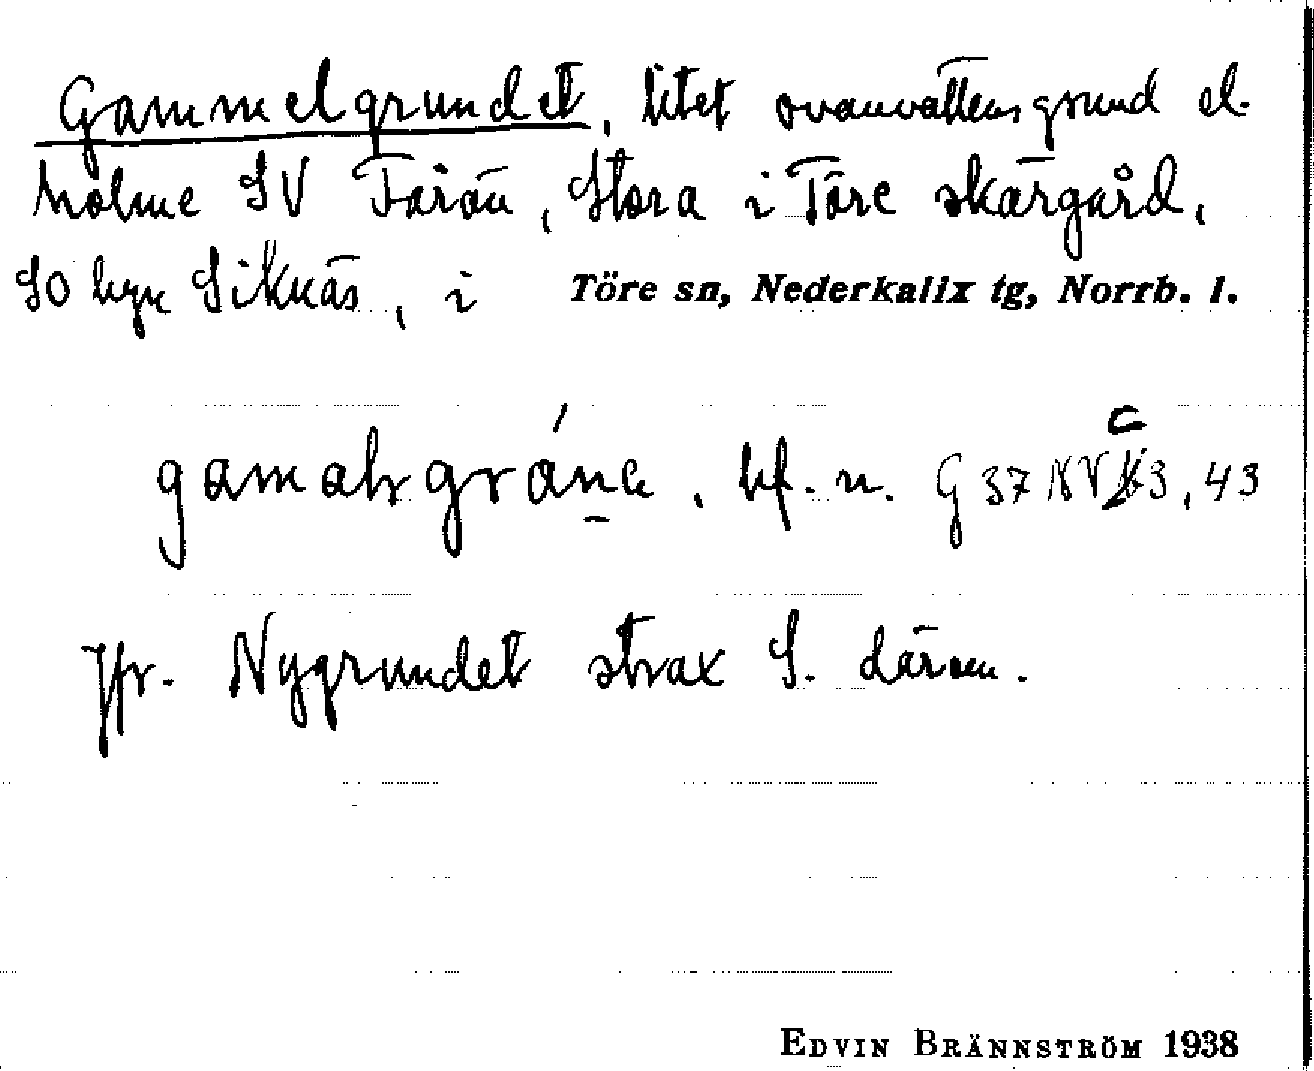 Gammelgrundet, litet ovanvattensgrund el.
holme SV Fårön, Stora i Töre skärgård,
SO byn Siknäs, i Töre sn, Nederkalix tg, Norrb. l.
bf. n. G 37 NV c 3, 43
Jfr. Nygrundet strax S. därom.
EDVIN BRÄNNSTRÖM 1938